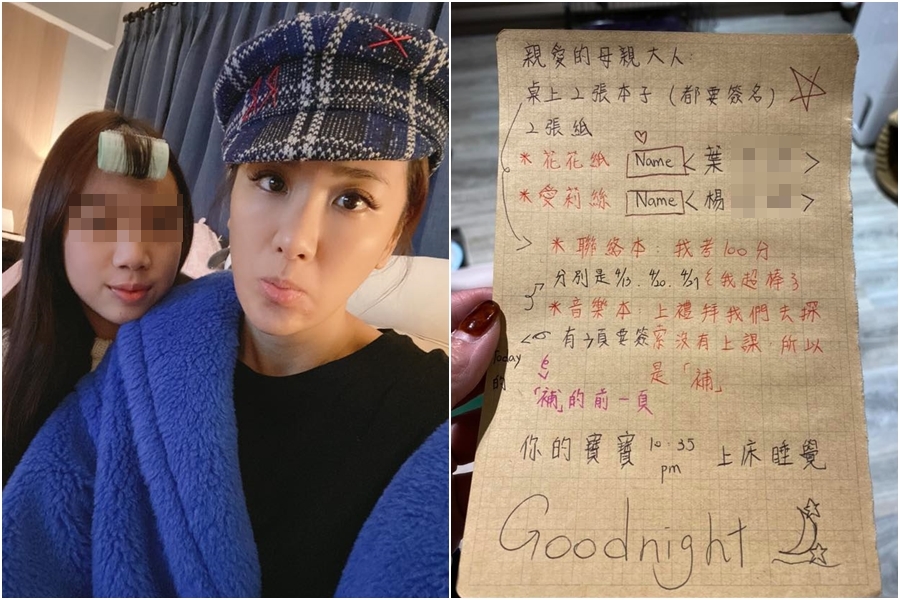 親愛的母親大人:
桌上2張本子(都要簽名)
2張紙
*花花紙 Name < 葉 >
*愛莉絲 Name < 楊 >
*聯絡本:我考100分
分別是 我超棒了
*音樂本:上禮拜我們去探
有3頁要簽 索沒有上課,所以
Today 的 是「補」
「補」的前一頁
你的寶寶 10:35 pm 上床睡覺
Goodnight